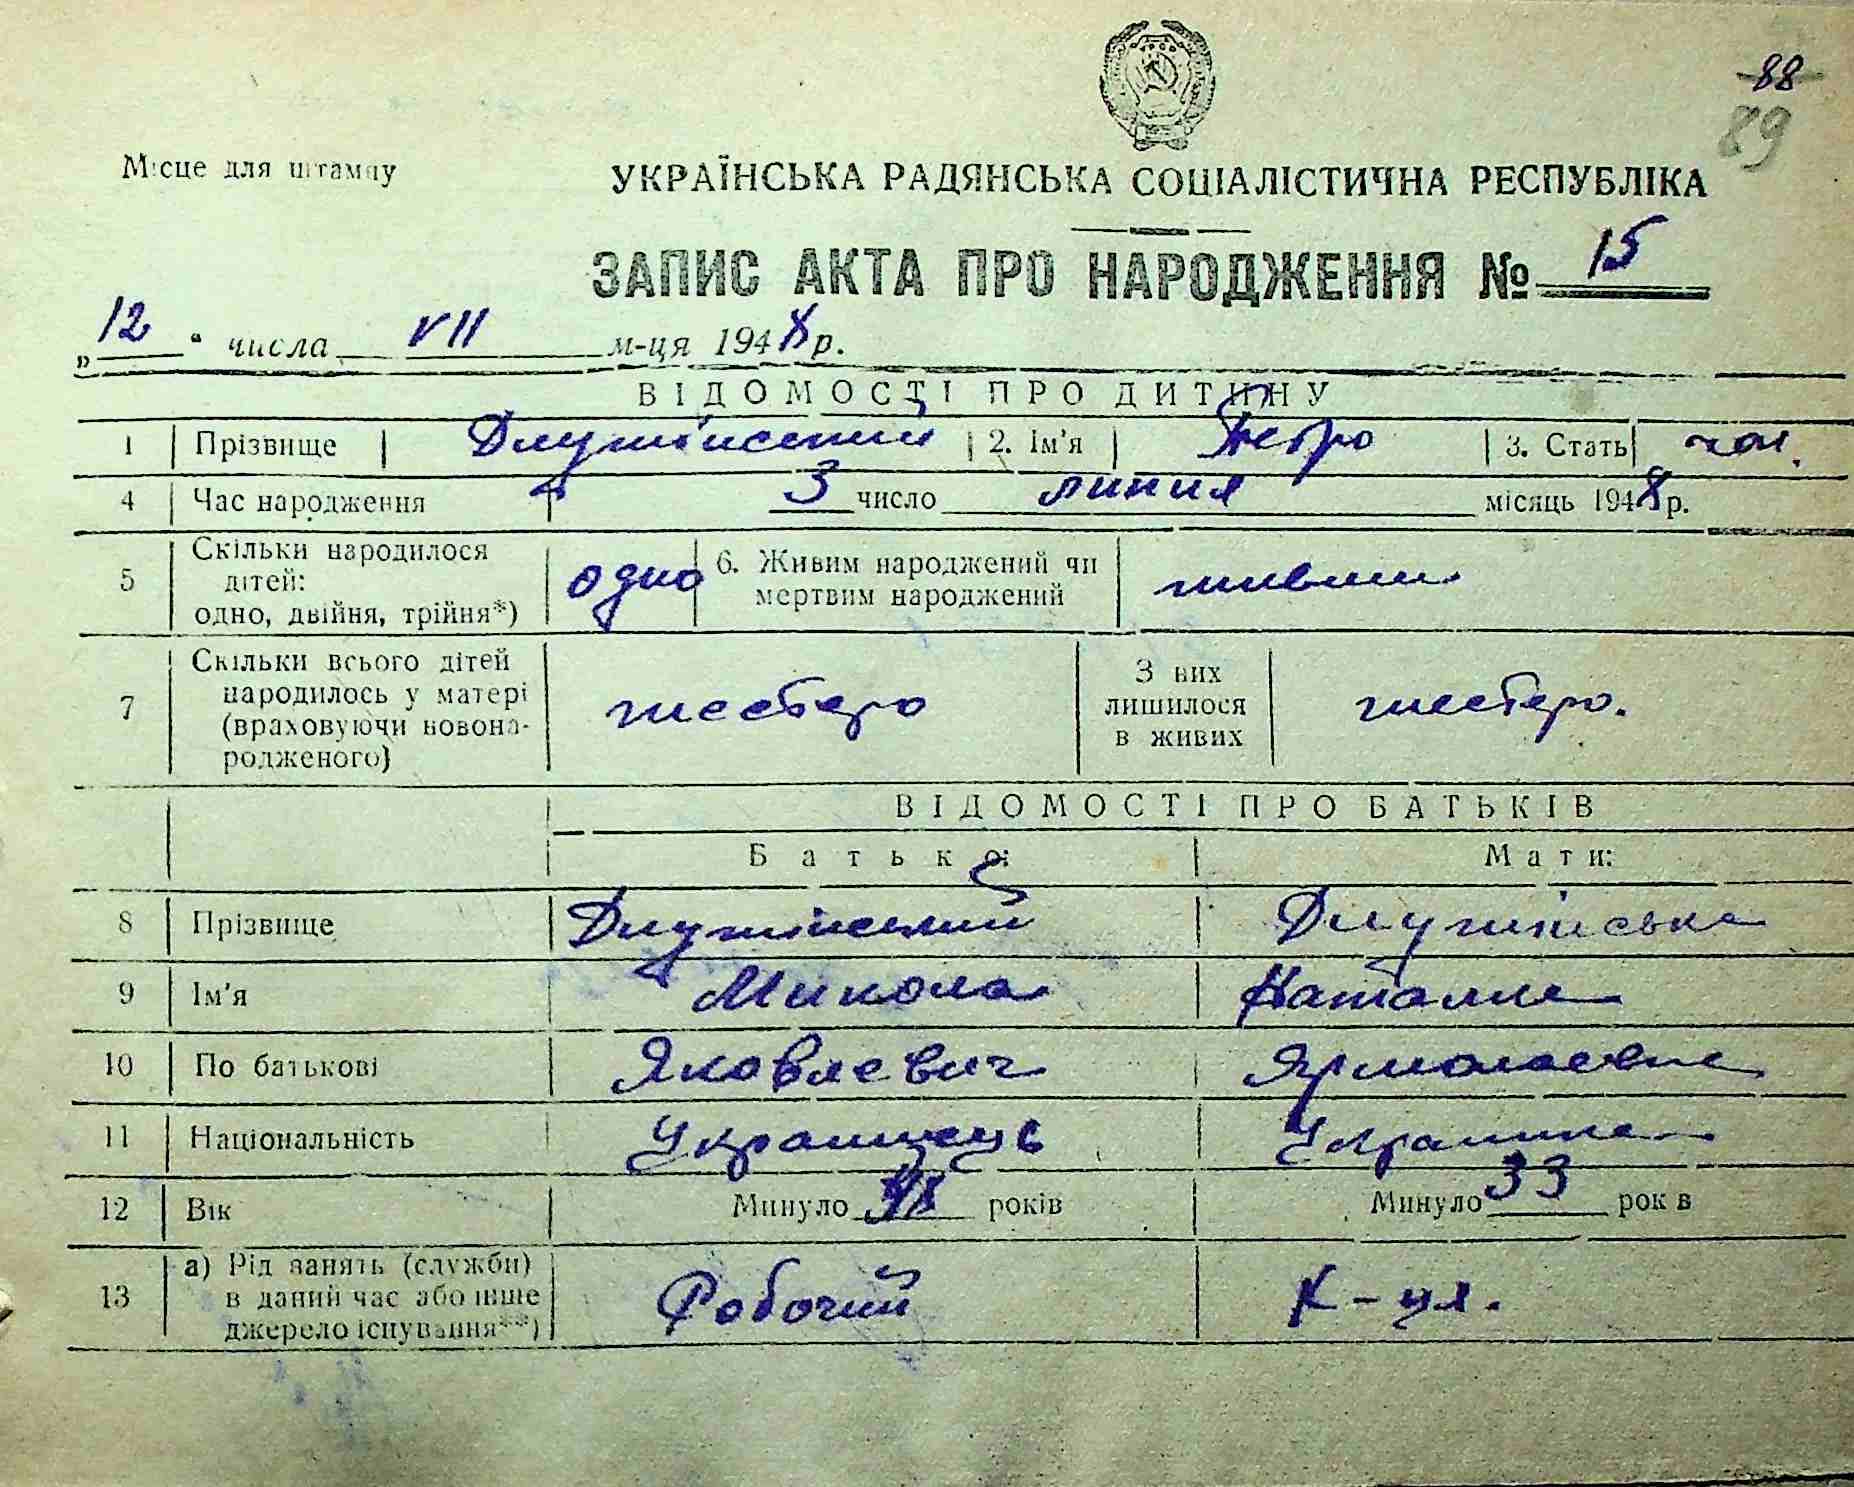 88
89
УРСР
Місце для штампу
УКРАЇНСЬКА РАДЯНСЬКА СОЦІАЛІСТИЧНА РЕСПУБЛІКА
ЗАПИС АКТА ПРО НАРОДЖЕННЯ № 15
„12“ числа VII м-ця 1948 р.
ВІДОМОСТІ ПРО ДИТИНУ
1 Прізвище 2. Ім'я Петро 3. Стать чол.
4 Час народження 3 число липня місяць 1948 р.
5 Скільки народилося дітей: одно, двійня, трійня*) одно 6. Живим народжений чи мертвим народжений живим
7 Скільки всього дітей народилось у матері (враховуючи новонародженого) шестеро З них лишилося в живих шестеро.
ВІДОМОСТІ ПРО БАТЬКІВ
Батько: Мати:
8 Прізвище
9 Ім'я Микола Наталка
10 По батькові Яковлевич Ярмолаевна
11 Національність Українець Українка
12 Вік Минуло років Минуло 33 років
13 а) Рід занять (служби) в даний час або інше джерело існування**) Робочий К-ця.